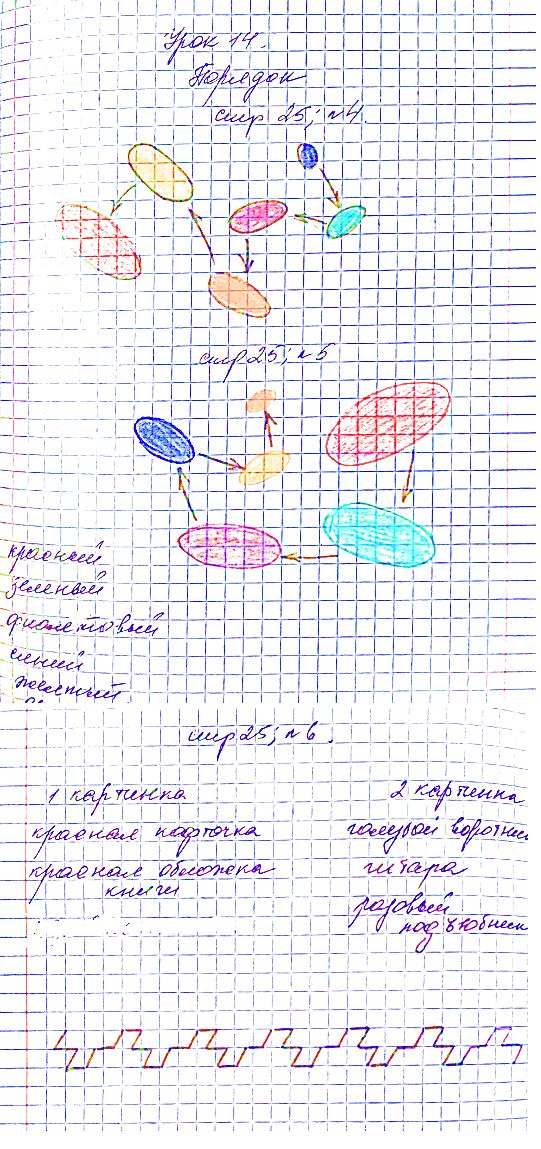 Урок 14.
Порядок
стр 25; №4.
стр 25; №5
красный
зеленый
фиолетовый
синий
желтый
стр 25; №6.
1 картинка
красная кофточка
красная обложка
книги
2 картинка
голубой воротник
гитара
розовый
подъюбник